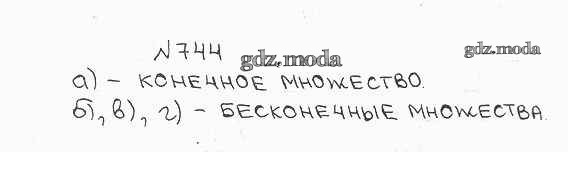 №744
gdz.moda
gdz.moda
а) - КОНЕЧНОЕ МНОЖЕСТВО.
б), в), г) - БЕСКОНЕЧНЫЕ МНОЖЕСТВА.